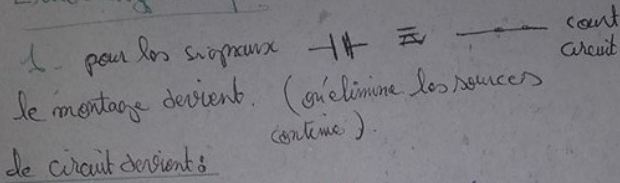 1. pour les signaux ⊣⊢ ≡ —— court circuit
le montage devient. (on élimine les sources
continue).
le circuit devient :